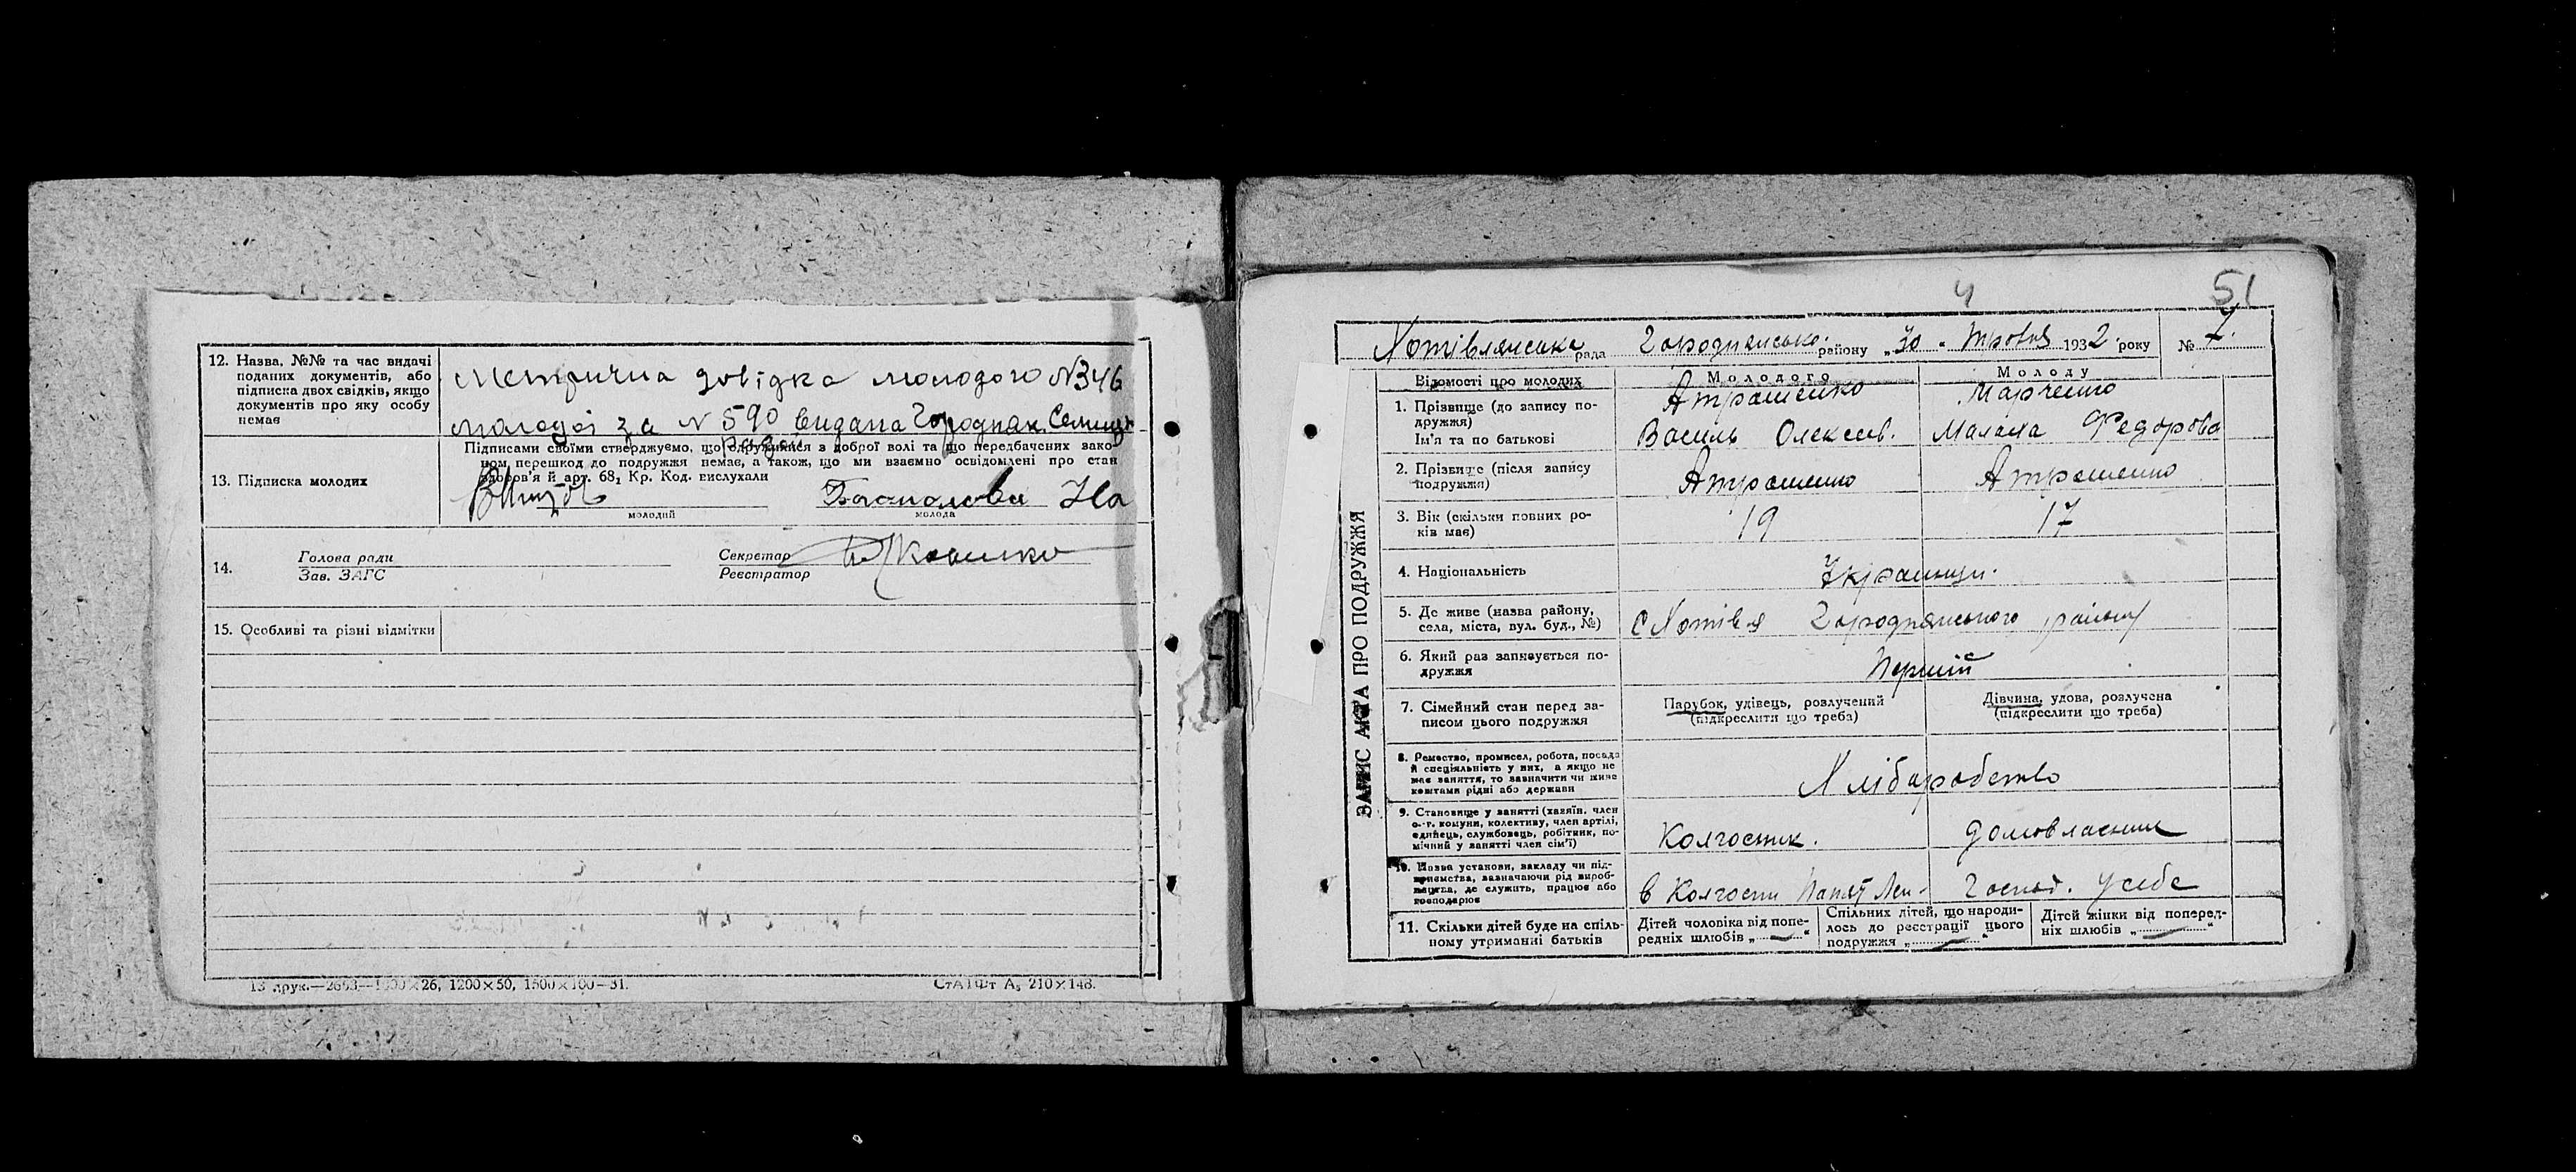 12. Назва, №№ та час видачі
поданих документів, або
підписка двох свідків, якщо
документів про яку особу
немає
Метрична довідка молодого №346
молодої за № 590 видана Городнян. Селищн
радою
13. Підписка молодих
Підписами своїми стверджуємо, що одружилися з доброї волі та що передбачених зако-
ном перешкод до подружжя немає, а також, що ми взаємно освідомлені про стан
здоров'я й арт. 68₁ Кр. Код. вислухали
молодий
молода
14.
Голова ради
Зав. ЗАГС
Секретар
Реєстратор
15. Особливі та різні відмітки
СтАІФт А₅ 210×148.
4
51
Хотівлянська рада Городнянсько. району „30 " травня 1932 року № 7.
ЗАПИС АКТА ПРО ПОДРУЖЖЯ
Відомості про молодих
Молодого
Молоду
1. Прізвище (до запису по-
дружжя)
Ім'я та по батькові
Атрошенко
Василь Олексієв.
Марченко
Малана Федорова
2. Прізвище (після запису
подружжя)
Атрошенко
Атрошенко
3. Вік (скільки повних ро-
ків має)
19
17
4. Національність
Українци.
5. Де живе (назва району,
села, міста, вул. буд., №)
с Хотівля Городнянського району
6. Який раз записується по-
дружжя
Перший
7. Сімейний стан перед за-
писом цього подружжя
Парубок, удівець, розлучений
(підкреслити що треба)
Дівчина, удова, розлучена
(підкреслити що треба)
8. Ремество, промисел, робота, посада
й спеціяльність у них, а якщо не
має заняття, то зазначити чи живе
коштами рідні або держави
Хліборобство
9. Становище у занятті (хазяїн, член
с.-г. комуни, колективу, член артілі,
єдинець, службовець, робітник, по-
мічний у занятті член сім'ї)
Колгосник.
домовласниц
10. Назва установи, закладу чи під-
приємства, зазначаючи рід вироб-
ництва, де служить, працює або
господарює
в Колгоспи Памят Лен-
Господ. у себе
11. Скільки дітей буде на спіль-
ному утриманні батьків
Дітей чоловіка від попе-
редніх шлюбів „ — "
Спільних дітей, що народи-
лось до реєстрації цього
подружжя „ — "
Дітей жінки від поперед-
ніх шлюбів „ — "